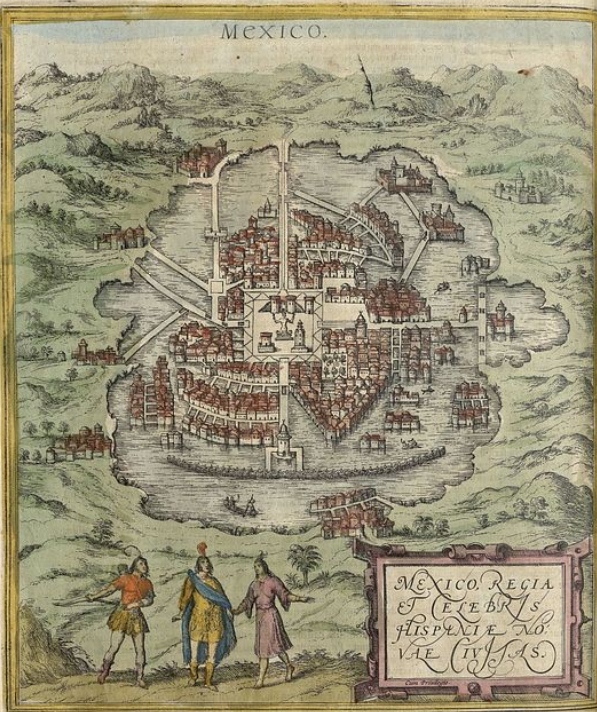 MEXICO.
MEXICO, REGIA
ET CELEBRIS
HISPANIÆ NO:
VAE CIVITAS.
Cum Privilegio